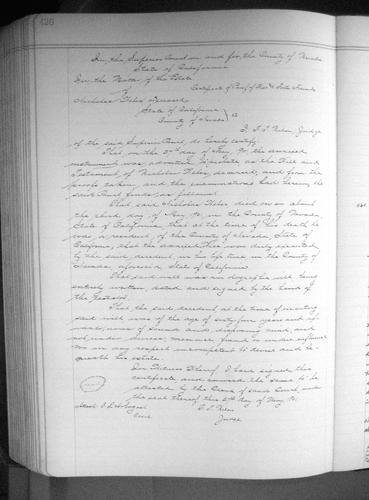 426
In the Superior Court in and for the County of Nevada
State of California
In the Matter of the Estate
of
Certificate of Proof of Will & Facts Found
Nicholas deceased
State of California
County of Nevada
Judge
of the said Superior Court, do hereby certify:
That on the day of the annexed
instrument was admitted to probate as the Will and
Testament of Nicholas deceased, and from the
proofs taken and the examinations had therein the
said Court finds as follows:
That said Nicholas died on or about
the third day of in the County of Nevada,
State of California, that at the time of his death he
was a resident of the County of Nevada State of
California, that the annexed Will was duly executed
by the said decedent, in his life time, in the County of
Nevada aforesaid, State of California
That said will was an olographic will
entirely written, dated and signed by the hand of
the testator.
That the said decedent at the time of executing
said will was of the age of sixty-four years and
was of sound and disposing mind, and
not under duress, menace, fraud or undue influence
nor in any respect incompetent to devise and be-
queath his estate.
In Witness Whereof, I have signed this
certificate and caused the same to be
attested by the Clerk of said Court under
the seal thereof this day of
Attest
Clerk
Judge